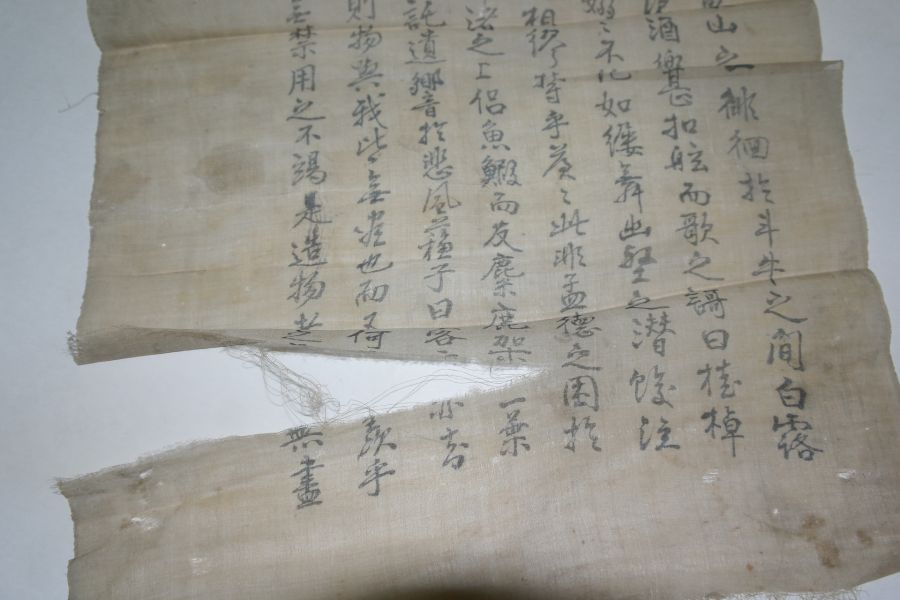 山之徘徊於斗牛之間白露
酒樂甚扣舷而歌之謌曰桂棹
嫋〻不絕如縷舞幽壑之潛蛟泣
相繆乎蒼〻此非孟德之困於
渚之上侶魚鰕而友麋鹿駕一葉
託遺響於悲風蘓子曰客亦知
則物與我皆無盡也而羨乎
無禁用之不竭是造物者無盡